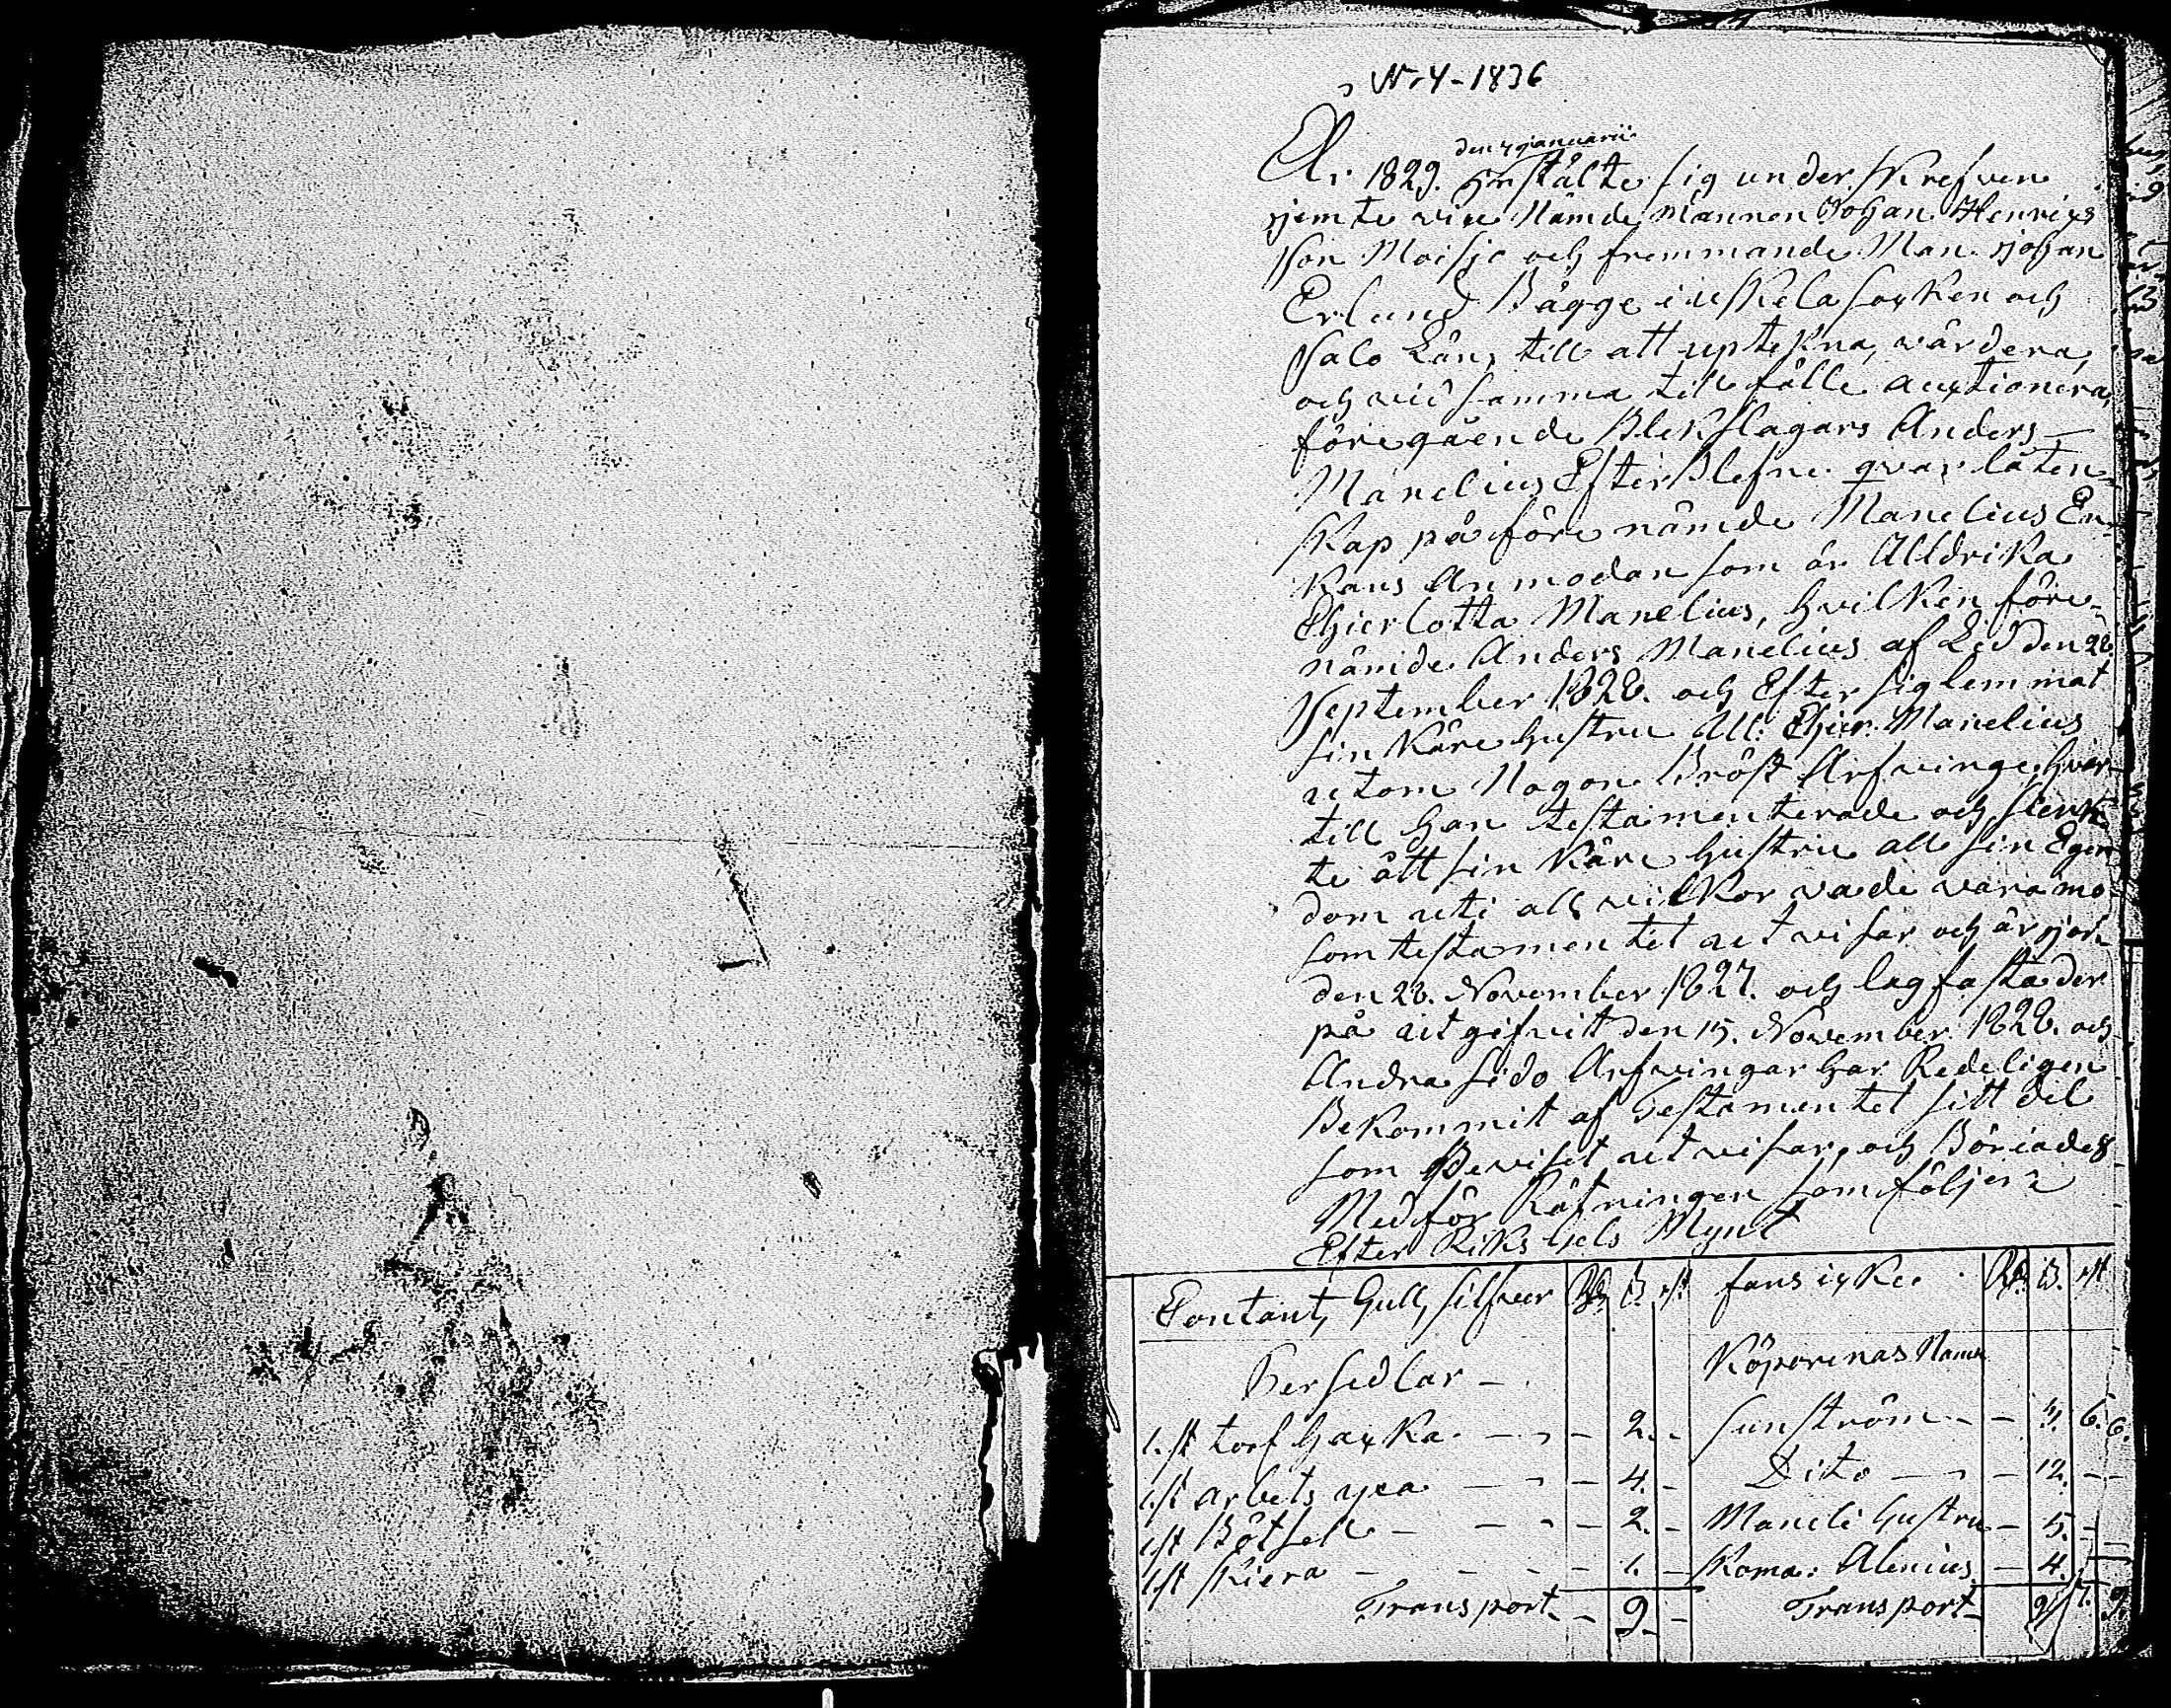 Nr 4 - 1836
den 4 januarii
År 1829. Instälte sig underskrefven
jemte vice Nämdemannen Johan Henrics
son Moisjo och fremmande Man Johan
Erlund Bagge i uskela socken och
Salo Län, till att uptekna, värdera,
och vid samma tillfälle auctionera,
föregående Blekslagars Anders
Manelius Efterblefne qvarlåten-
skap på förenämde Manelius En-
kans Anmodan som är Alldrika
Chierlotta Manelius, hvilken före-
nämde Anders Manelius af Led den 28.
September 1828. och Efter sig lemmat
sin Käre hustru Ull: Chier: Manelius
utom Nogon Bröst Arfvinge hvar-
till han testamenterade och skenk-
te ått sin Käre hustru all sin Egen
dom uti all vilkor vad e vara må
som testamentet utvisar och är gjort
den 28. November 1827. och lagfasta der
på utgifvitt den 15. November 1828. och
Andra sido Arfvingar har Redeligen
Bekommit af Testamentet sitt del
som Beviset utvisar, och Böriades
Medför Rätningen som följer
Efter Riks Gels Mynt
Contant, Gull, silfver Rd ß. rst fansicke Rd ß. rst
Bersedlar - Köparenas Namn
1. st torf hacka - - 2. - sunström - - 3. 6. 6.
1. st arbets yxa - - 4. - Dito - - 12. - -
1 st Bötsell - - - 2. - Maneli hustru - 5. -
1. st skiera - - - 1. - Koma: Alenius - 4.
Transport - 9 - Transport